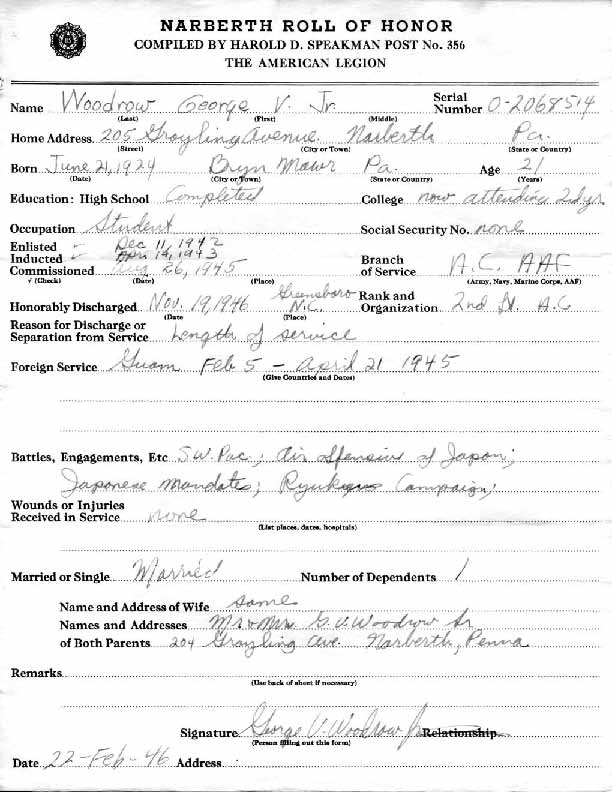 NARBERTH ROLL OF HONOR
COMPILED BY HAROLD D. SPEAKMAN POST No. 356
THE AMERICAN LEGION
Name Woodrow George V. Jr. Serial Number O-2068514
(Last) (First) (Middle)
Home Address 205 Grayling Avenue Narberth Pa.
(Street) (City or Town) (State or Country)
Born June 21, 1924 Bryn Mawr Pa. Age 21
(Date) (City or Town) (State or Country) (Years)
Education: High School Completed College now attending 2d yr
Occupation Student Social Security No. none
Enlisted ✓ Dec 11, 1942
Inducted ✓ Apr 14, 1943 Branch
Commissioned Aug 26, 1945 of Service A.C. AAF
√ (Check) (Date) (Place) (Army, Navy, Marine Corps, AAF)
Honorably Discharged Nov. 19, 1946 Greensboro N.C. Rank and Organization 2nd Lt. A.C
(Date (Place)
Reason for Discharge or
Separation from Service Length of service
Foreign Service Guam Feb 5 - April 21 1945
(Give Countries and Dates)
Battles, Engagements, Etc S.W. Pac; Air offensive of Japan;
Japanese Mandates; Ryukyus Campaign;
Wounds or Injuries
Received in Service none
(List places, dates, hospitals)
Married or Single Married Number of Dependents 1
Name and Address of Wife same
Names and Addresses Mr & Mrs. G.V. Woodrow Sr
of Both Parents 204 Grayling Ave. Narberth, Penna
Remarks
(Use back of sheet if necessary)
Signature George V. Woodrow Jr Relationship
(Person filling out this form)
Date 22-Feb-46 Address